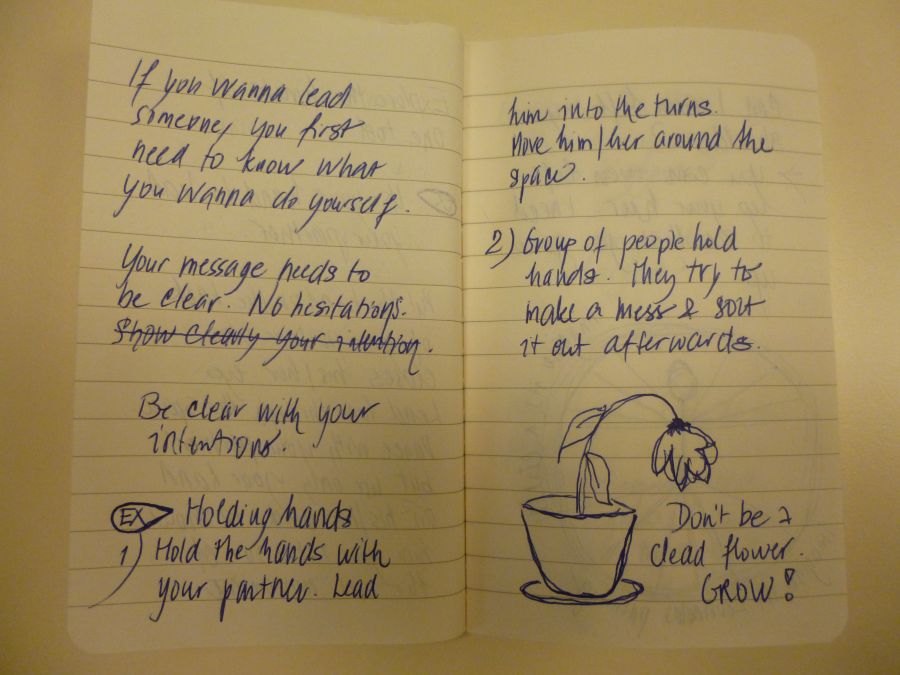 If you wanna lead
someone you first
need to know what
you wanna do yourself.
Your message needs to
be clear. No hesitations.
Show clearly your intention.
Be clear with your
intentions.
EX Holding hands
1) Hold the hands with
your partner. Lead
him into the turns.
Move him/her around the
space.
2) Group of people hold
hands. They try to
make a mess & sort
it out afterwards.
Don't be a
dead flower.
GROW!